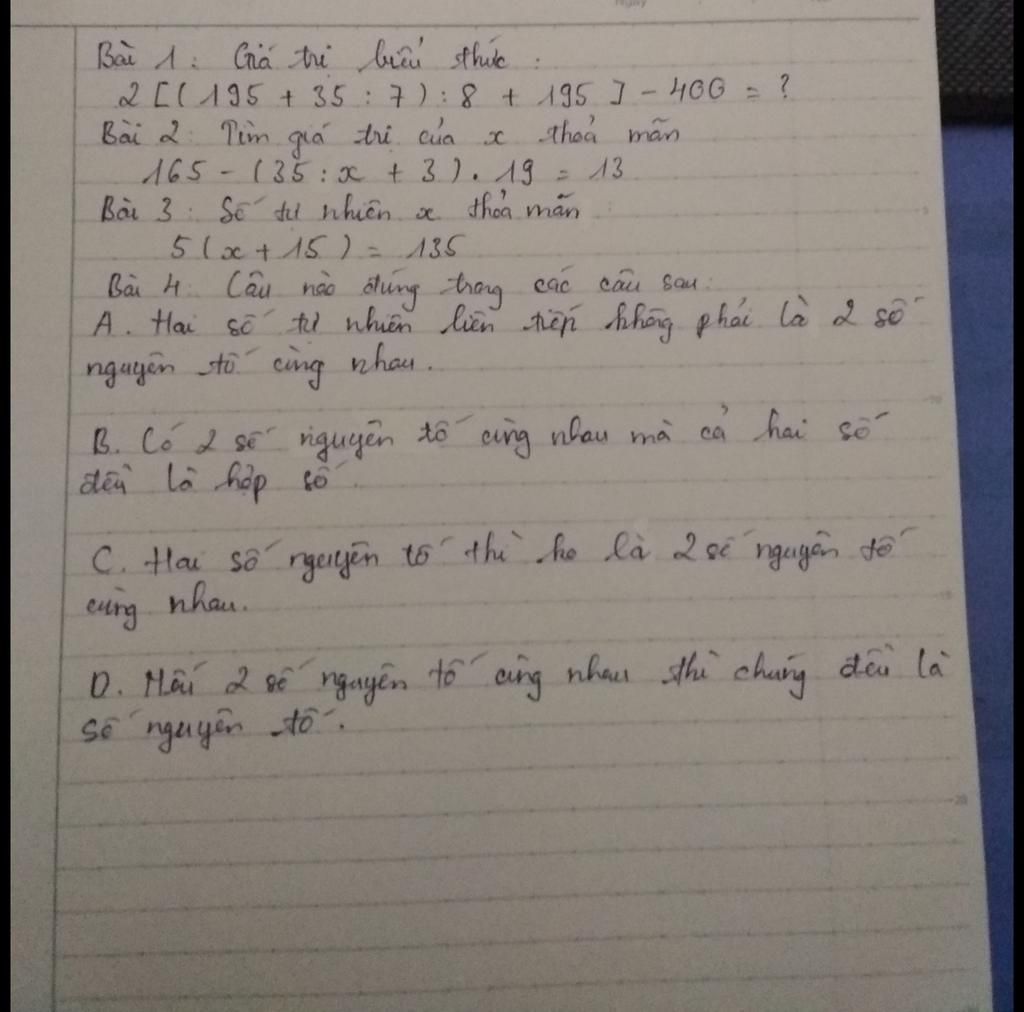 Bài 1: Giá trị biểu thức:
2[(195 + 35 : 7) : 8 + 195] - 400 = ?
Bài 2: Tìm giá trị của x thoả mãn
165 - (35 : x + 3) . 19 = 13
Bài 3: Số tự nhiên x thỏa mãn
5(x + 15) = 135
Bài 4: Câu nào đúng trong các câu sau:
A. Hai số tự nhiên liên tiếp không phải là 2 số
nguyên tố cùng nhau.
B. Có 2 số nguyên tố cùng nhau mà cả hai số
đều là hợp số.
C. Hai số nguyên tố thì ko là 2 số nguyên tố
cùng nhau.
D. 2 số nguyên tố cùng nhau thì chúng đều là
số nguyên tố.